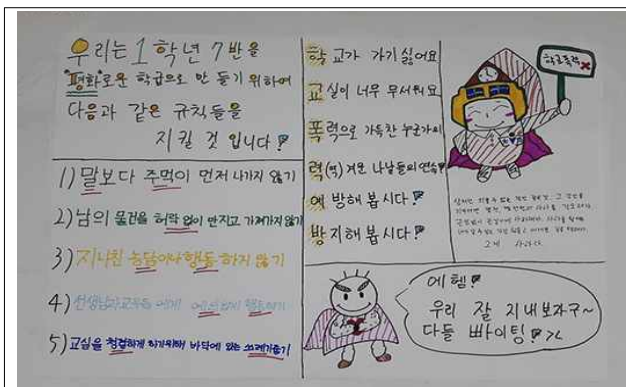 우리는 1학년 7반을
"평화"로운 학급으로 만들기 위하여
다음과 같은 규칙들을
지킬 것 입니다!
1) 말보다 주먹이 먼저 나가지 않기
2) 남의 물건을 허락 없이 만지고 가져가지 않기
3) 지나친 농담이나 행동 하지 않기
4) 선생님과 교우들에게 예의있게 행동하기
5) 교실을 청결하게 하기위해 바닥에 있는 쓰레기줍기
학교가 가기 싫어요
교실이 너무 무서워요
폭력으로 가득찬 누군가의
력(역)겨운 나날들의 연속!
예방해 봅시다!
방지해 봅시다!
학교폭력 X
에헴!
우리 잘 지내보자구~
다들 빠이팅! >ㄴ